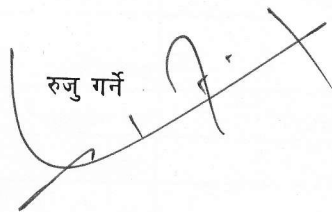 रुजु गर्ने